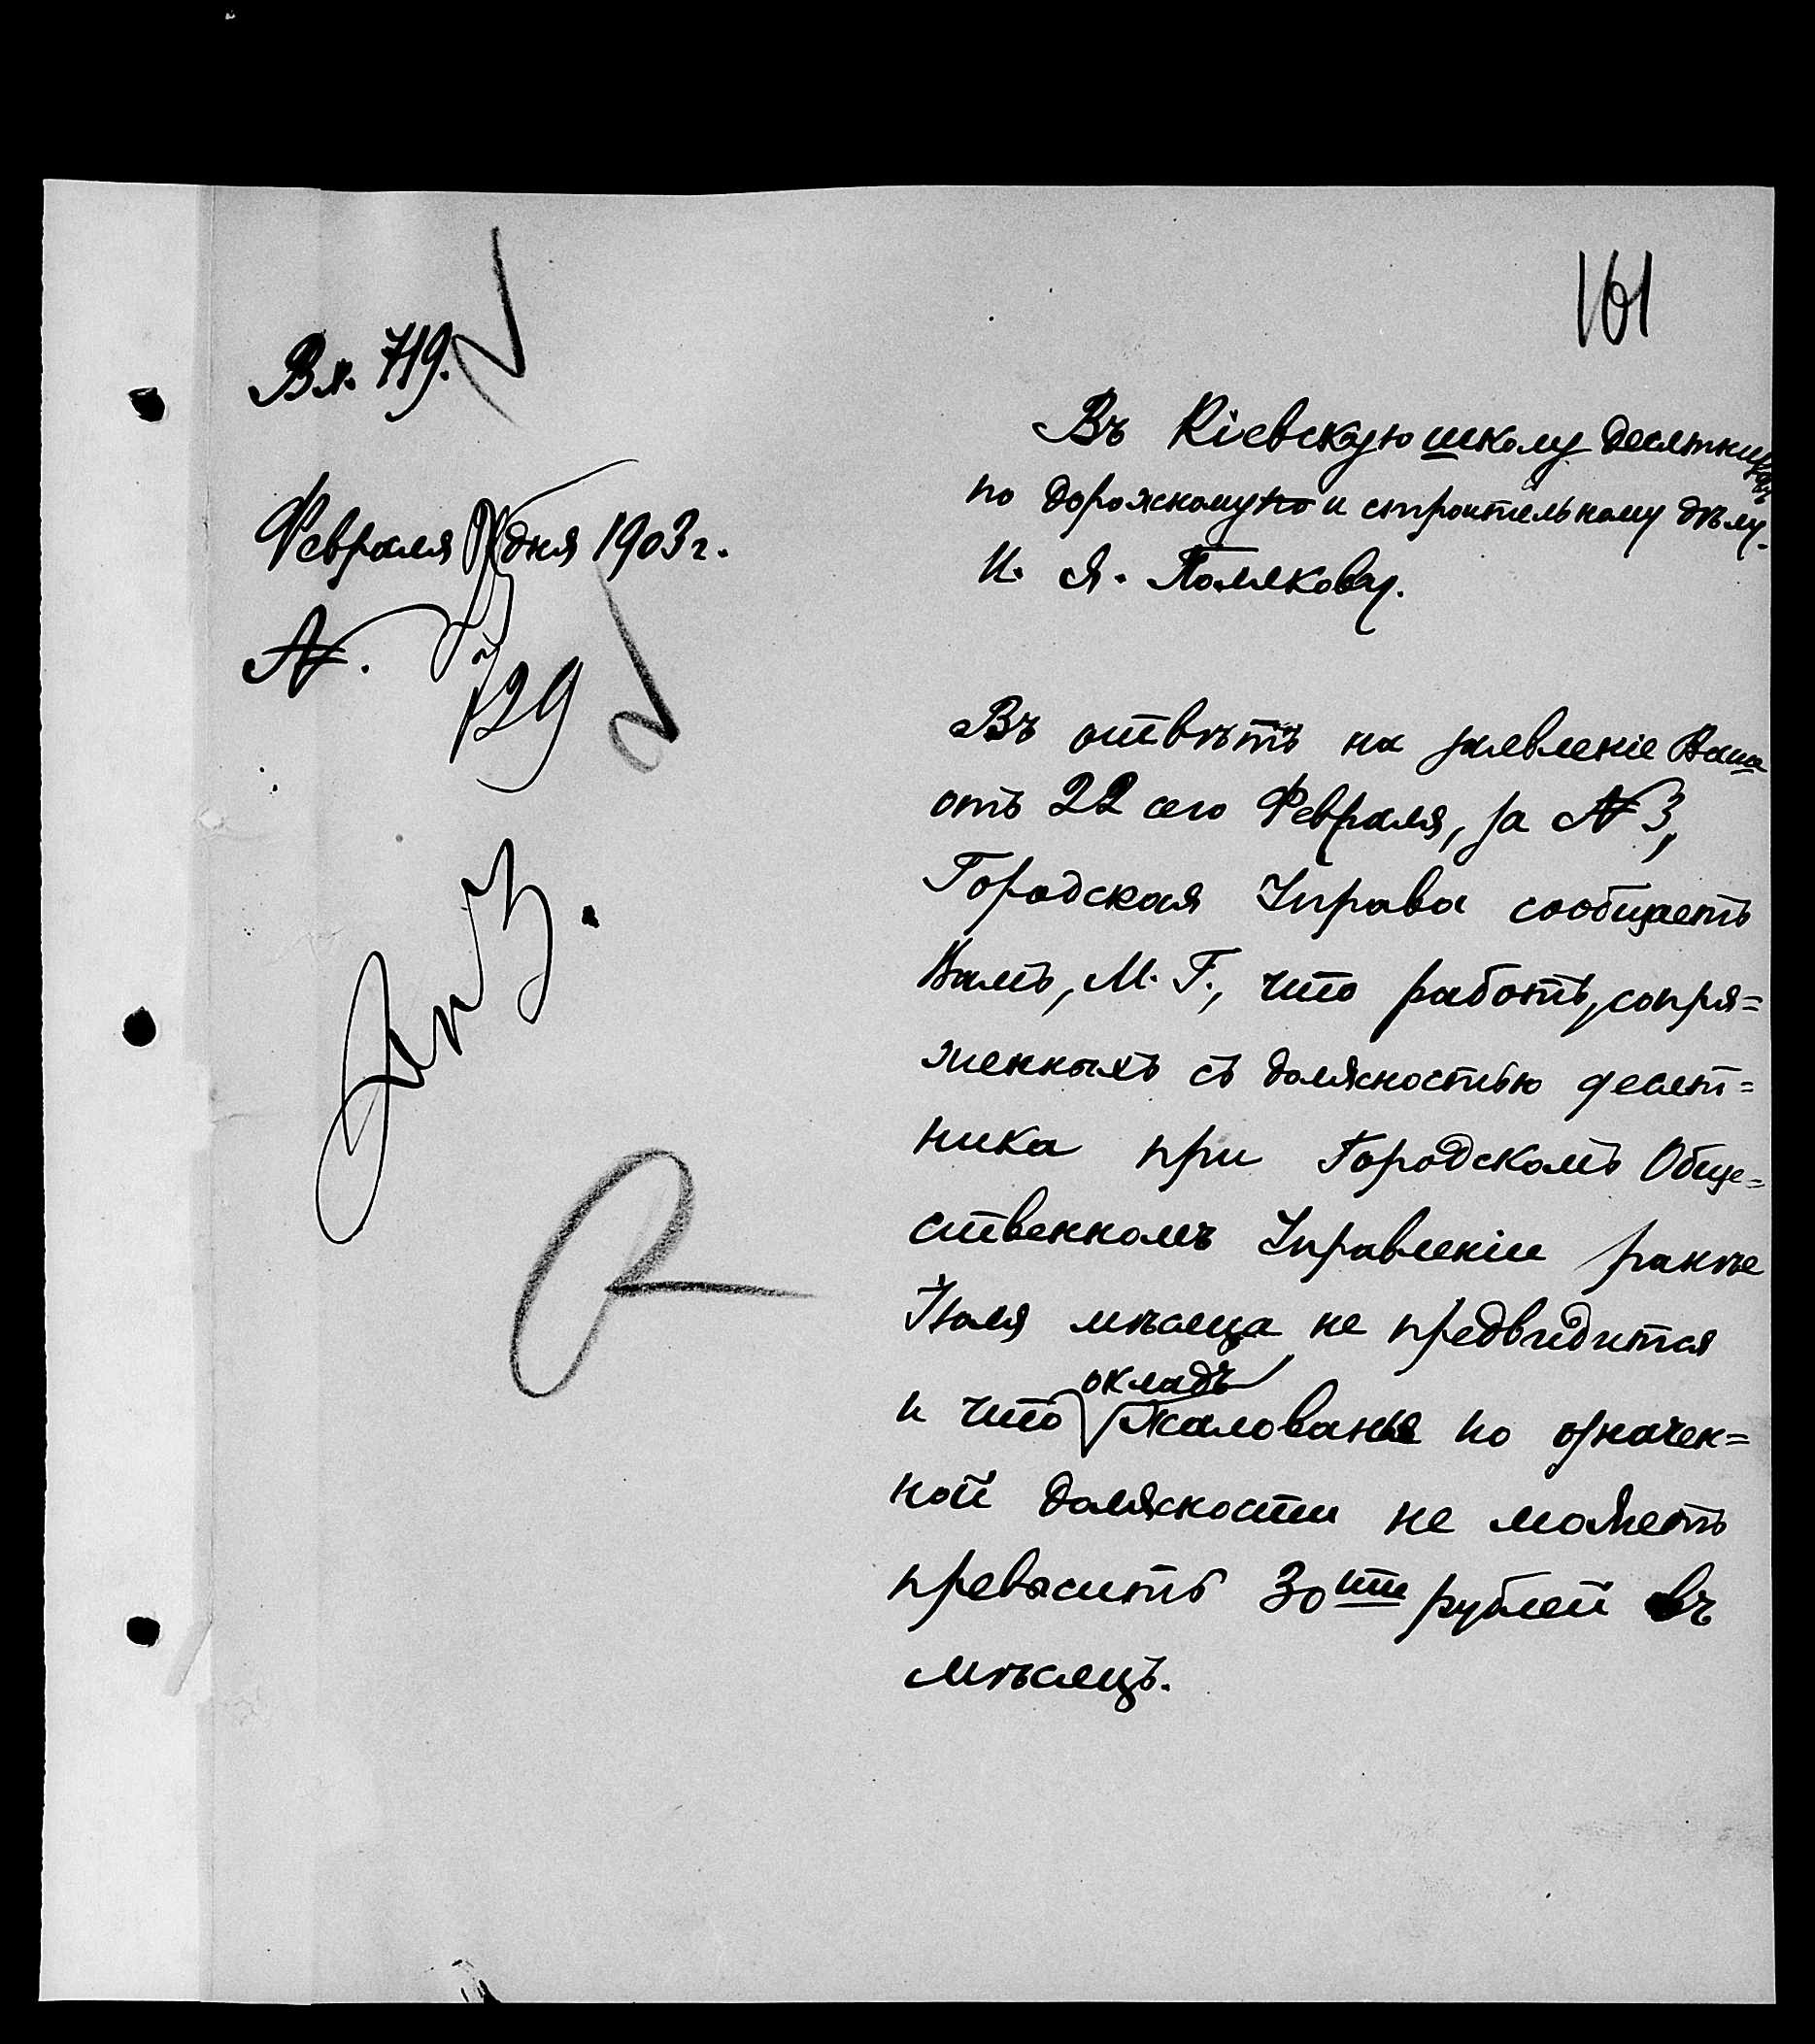 161
Вх. 719.
Февраля дня 1903 г.
№.
729
Въ Кіевскую школу десятниковъ
по дорожному и строительному дѣлу.
И. Я. Полякову.
Въ отвѣтъ на заявленіе Ваше
отъ 22 сего Февраля, за № 3,
Городская Управа сообщаетъ
Вамъ, М. Г., что работъ, сопря=
женныхъ съ должностью десят=
ника при Городскомъ Обще=
ственномъ Управленіи ранѣе
Іюля мѣсяца не предвидится
окладъ
и что жалованья по означен=
ной должности не можетъ
превысить 30ти рублей въ
мѣсяцъ.